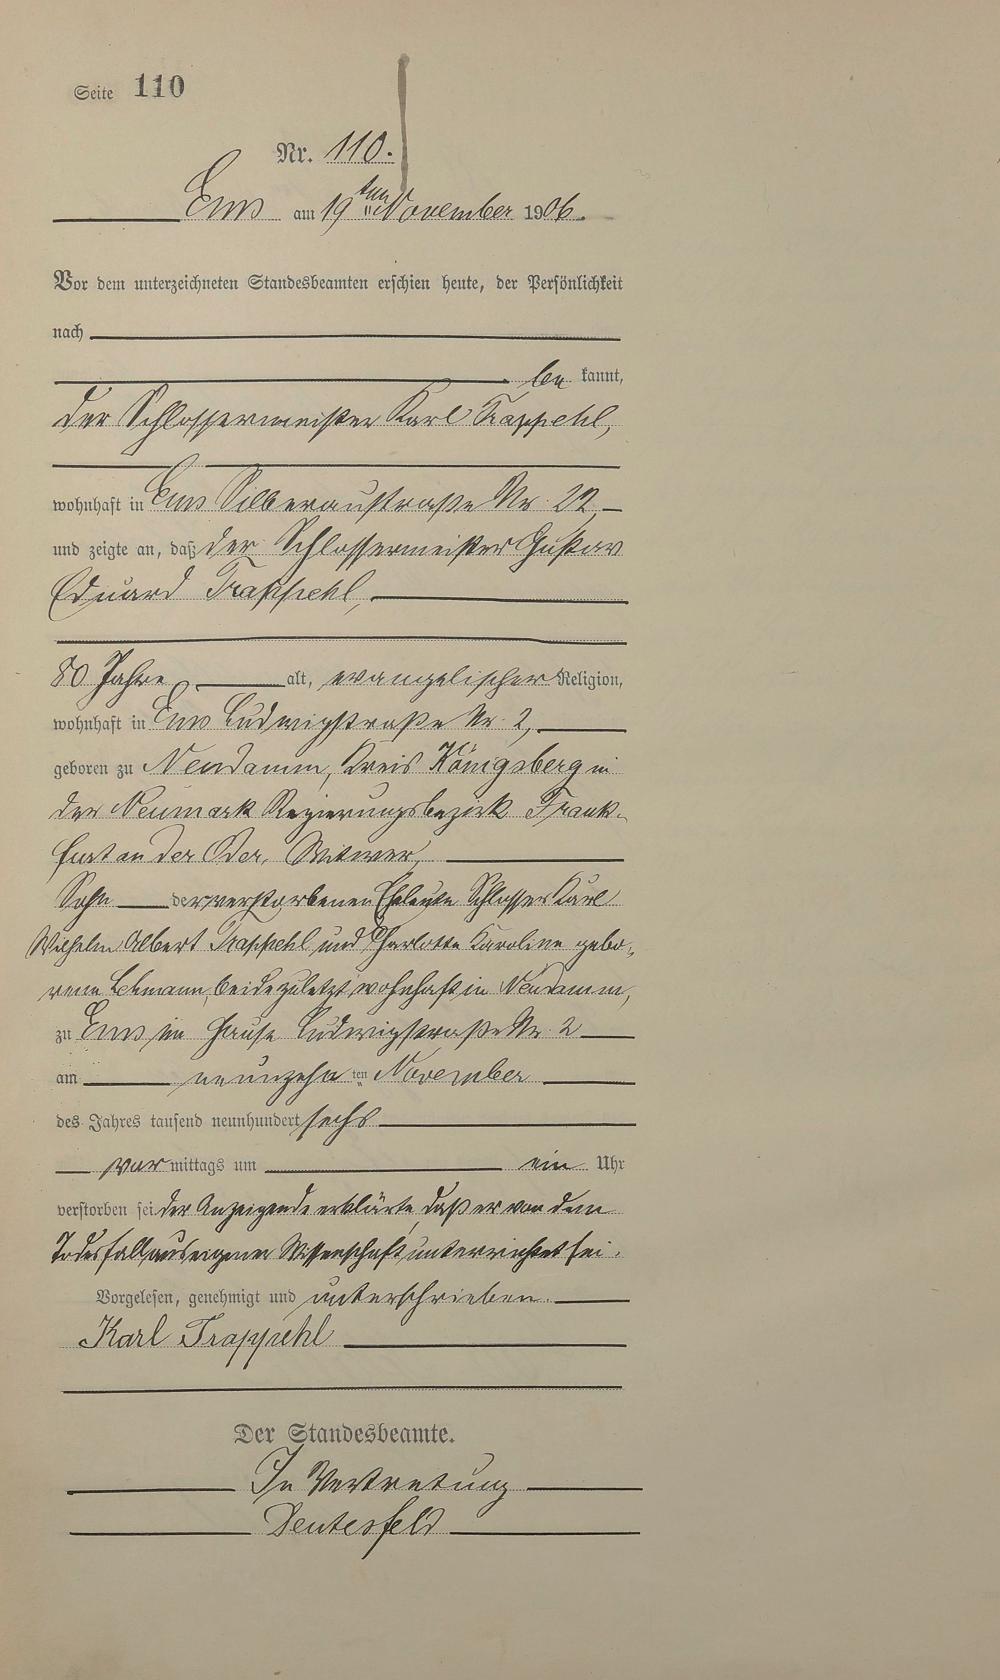 Seite 110
Nr. 110.
Ems am 19ten November 1906.
Vor dem unterzeichneten Standesbeamten erschien heute, der Persönlichkeit
nach
be kannt,
der Schlossermeister Karl Trappehl,
wohnhaft in Ems Silberaustraße Nr. 22
und zeigte an, daß der Schlossermeister Gustav
Eduard Trappehl,
80 Jahre alt, evangelischer Religion,
wohnhaft in Ems Ludwigstraße Nr. 2,
geboren zu Neudamm, Kreis Königsberg in
der Neumark Regierungsbezirk Frank-
furt an der Oder, Witwer,
Sohn der verstorbenen Eheleute Schlosser Karl
Wilhelm Albert Trappehl und Charlotte Karoline gebo-
rene Lehmann, beide zuletzt wohnhaft in Neudamm,
zu Ems im Hause Ludwigstraße Nr. 2
am neunzehn ten November
des Jahres tausend neunhundert sechs
vor mittags um ein Uhr
verstorben sei der Anzeigende erklärte, daß er von dem
Todesfall aus eigener Wissenschaft unterrichtet sei.
Vorgelesen, genehmigt und unterschrieben.
Karl Trappehl
Der Standesbeamte.
In Vertretung
Deutesfeld